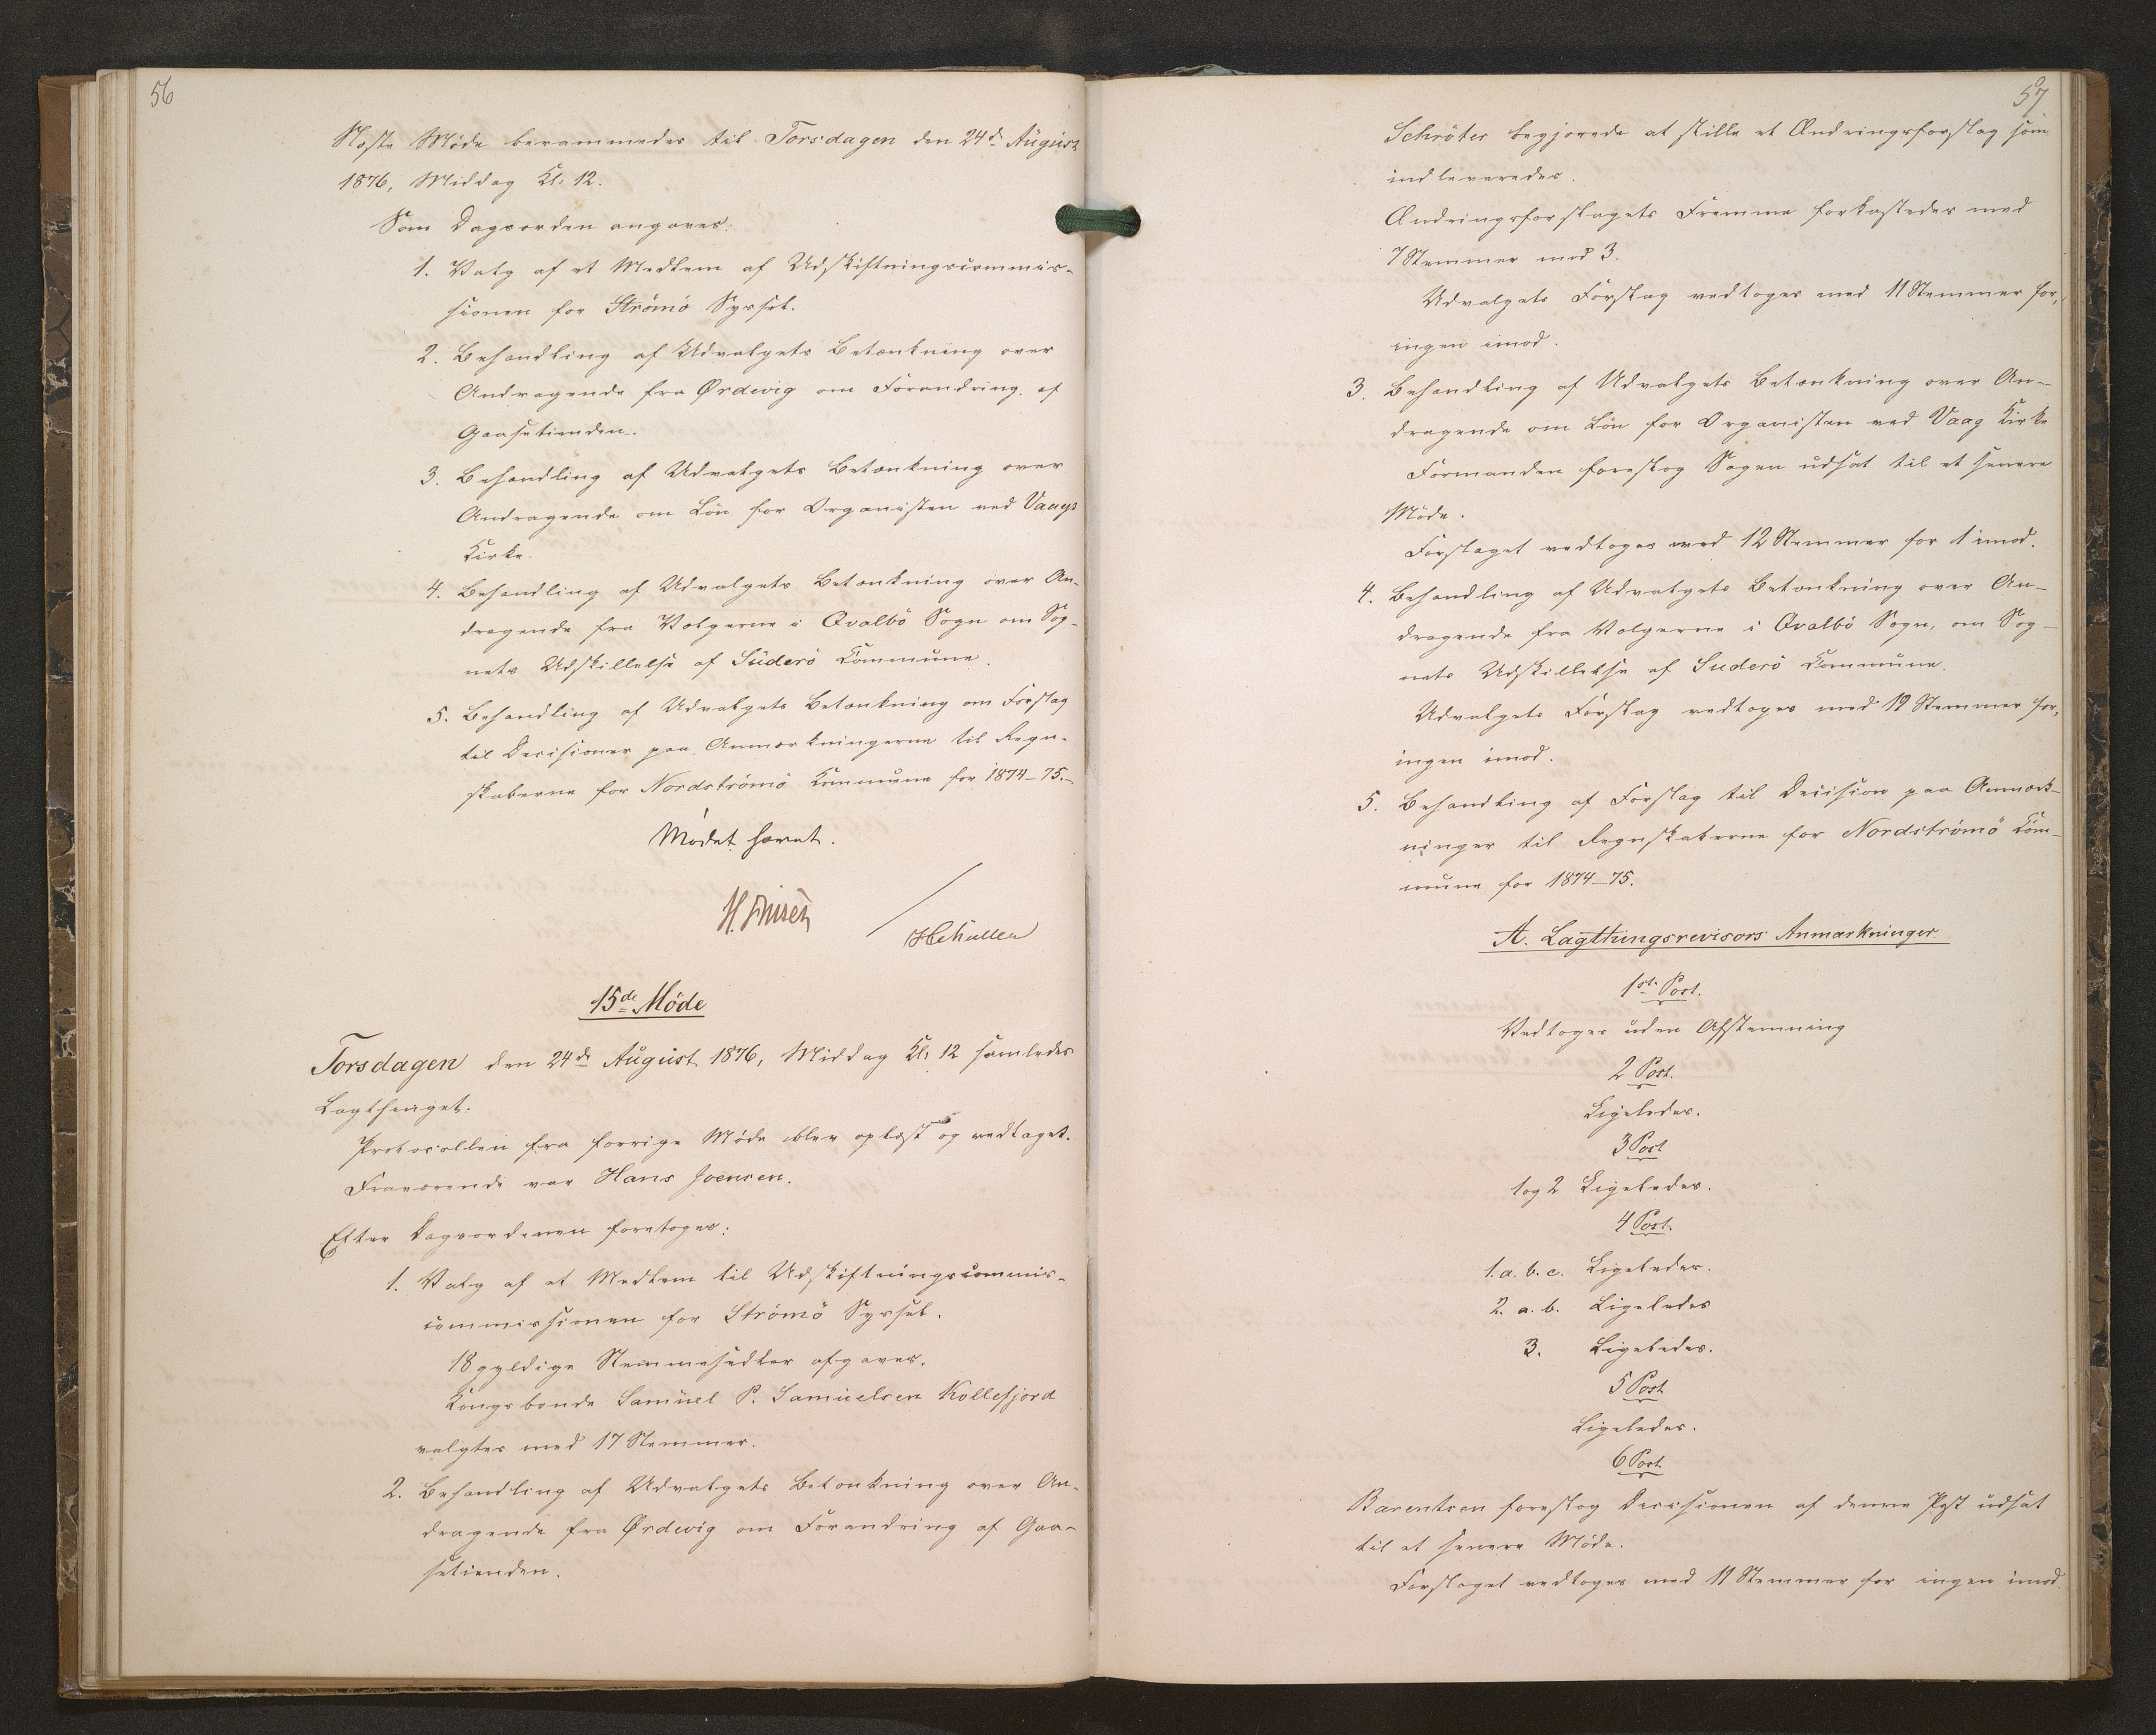 56
Næste Møde berammedes til Torsdagen den 24de August
1876, Middag Kl: 12.
Som Dagsorden angaves:
1. Valg af et Medlem af Udskiftningscommis-
sionen for Strømø Syssel.
2. Behandling af Udvalgets Betænkning over
Andragende fra Ørdevig om Forandring af
Gaasetienden.
3. Behandling af Udvalgets Betænkning over
Andragende om Løn for Organisten ved Vaags
Kirke.
4. Behandling af Udvalgets Betænkning over An-
dragende fra Vælgerne i Qvalbø Sogn om Sog-
nets Udskillelse af Süderø Kommune.
5. Behandling af Udvalgets Betænkning om Forslag
til Decisioner paa Anmærkningerne til Regn-
skaberne for Nordstrømø Kommune for 1874-75.-
Mødet hævet.
15de Møde
Torsdagen den 24de August 1876, Middag Kl: 12 samledes
Lagthinget.
Protocollen fra forrige Møde blev oplæst og vedtaget.
Fraværende var Hans Joensen.
Efter Dagsordenen foretoges:
1. Valg af et Medlem til Udskiftningscommis-
commissionen for Strømø Syssel.
18 gyldige Stemmesedler afgaves.
Kongsbonde Samüel P. Samüelsen Kollefjord
valgtes med 17 Stemmer.
2. Behandling af Udvalgets Betænkning over An-
dragende fra Ørdevig om Forandring af Gaa-
setienden.
57
Schrøter begjærede at stille et Ændringsforslag som
indleveredes.
Ændringsforslagets Fremme forkastedes med
7 Stemmer mod 3.
Udvalgets Forslag vedtoges med 11 Stemmer for,
ingen imod.
3. Behandling af Udvalgets Betænkning over An-
dragende om Løn for Organisten ved Vaag Kirke
Formanden foreslog Sagen udsat til et senere
Møde.
Forslaget vedtoges med 12 Stemmer for 1 imod.
4. Behandling af Udvalgets Betænkning over An-
dragende fra Vælgerne i Qvalbø Sogn, om Sog-
nets Udskillelse af Suderø Kommune.
Udvalgets Forslag vedtoges med 19 Stemmer for,
ingen imod.
5. Behandling af Forslag til Decision paa Anmærk-
ninger til Regnskaberne for Nordstrømø Kom-
mune for 1874-75.
A. Lagthingsrevisors Anmærkninger.
1ste Post.
Vedtoges uden Afstemning
2 Post.
Ligeledes.
3 Post
1 og 2 Ligeledes.
4 Post.
1. a. b. c. Ligeledes.
2. a. b. Ligeledes
3. Ligeledes.
5 Post
Ligeledes.
6 Post
Barentsen foreslog Decisionen af denne Post udsat
til et senere Møde.
Forslaget vedtoges med 11 Stemmer for ingen imod.